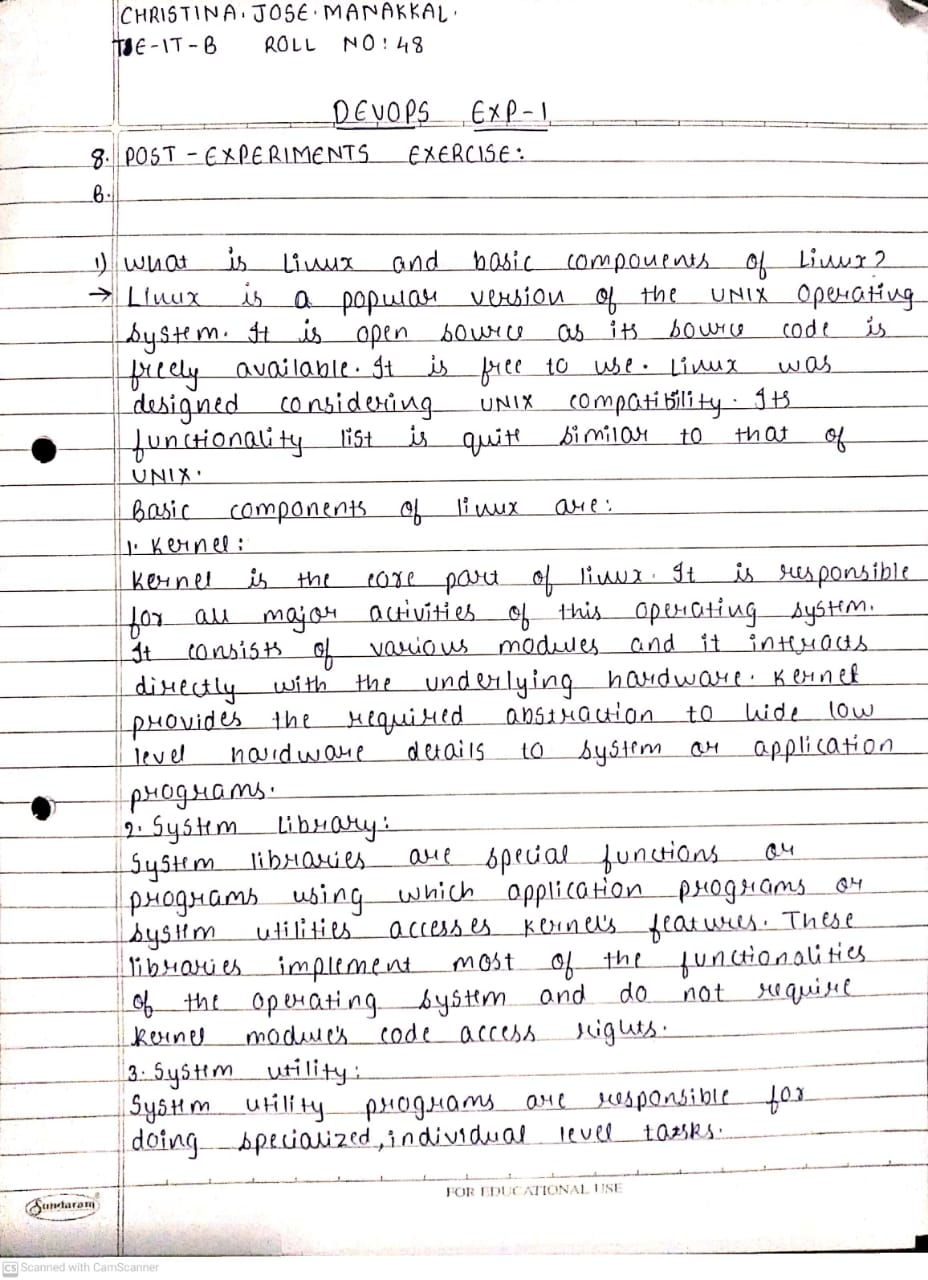 CHRISTINA. JOSE. MANAKKAL.
TE-IT-B ROLL NO: 48
DEVOPS EXP-1
8. POST-EXPERIMENTS EXERCISE:
B.
1) What is Linux and basic components of Linux?
→ Linux is a popular version of the UNIX Operating
System. It is open source as its source code is
freely available. It is free to use. Linux was
designed considering UNIX compatibility. Its
functionality list is quite similar to that of
UNIX.
Basic components of linux are:
1. Kernel:
Kernel is the core part of linux. It is responsible
for all major activities of this operating system.
It consists of various modules and it interacts
directly with the underlying hardware. Kernel
provides the required abstraction to hide low
level hardware details to system or application
programs.
2. System Library:
System libraries are special functions or
programs using which application programs or
system utilities accesses kernel's features. These
libraries implement most of the functionalities
of the operating system and do not require
kernel module's code access rights.
3. System utility:
System utility programs are responsible for
doing specialized, individual level tasks.
FOR EDUCATIONAL USE
Sundaram
CS Scanned with CamScanner